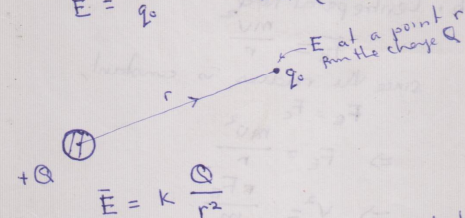 E = q₀
E at a point r
from the charge Q
q₀
r
+
+Q
Ē = K Q/r²